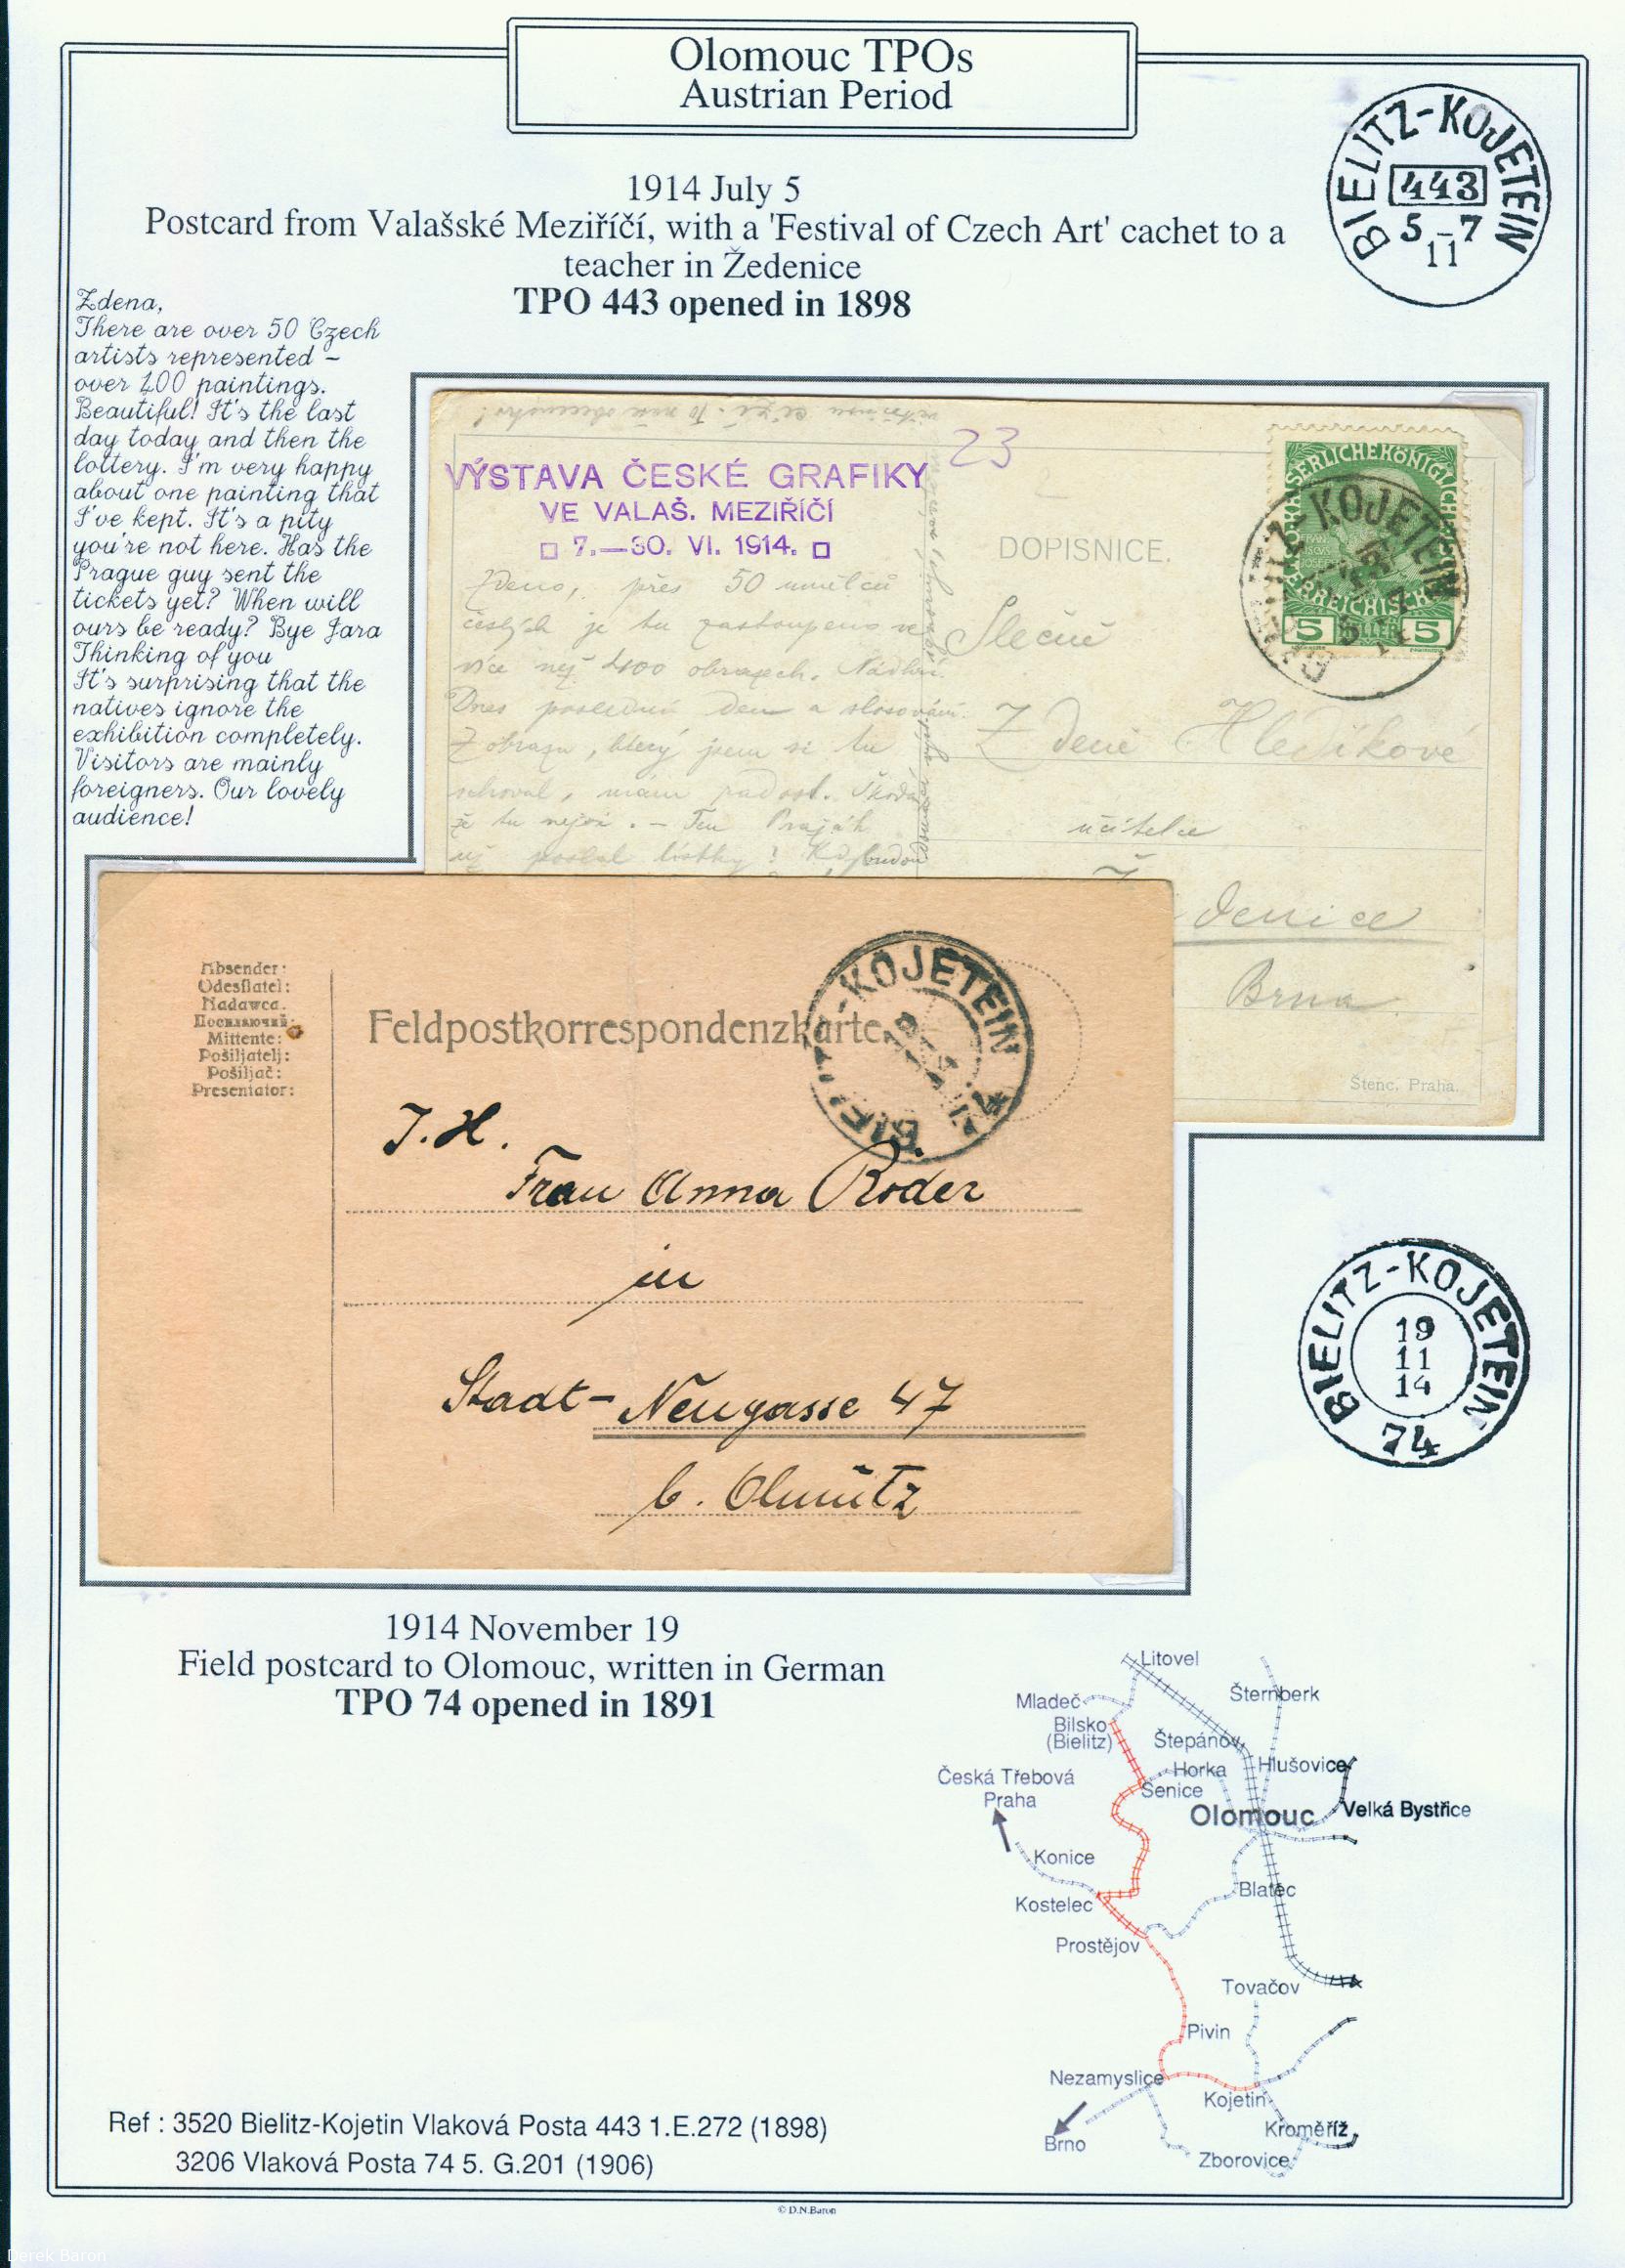 Olomouc TPOs
Austrian Period
1914 July 5
Postcard from Valašské Meziříčí, with a 'Festival of Czech Art' cachet to a
teacher in Žedenice
TPO 443 opened in 1898
BIELITZ-KOJETEIN
443
5-7
11
Zdena,
There are over 50 Czech
artists represented -
over 400 paintings.
Beautiful! It's the last
day today and then the
lottery. I'm very happy
about one painting that
I've kept. It's a pity
you're not here. Has the
Prague guy sent the
tickets yet? When will
ours be ready? Bye Jara
Thinking of you
It's surprising that the
natives ignore the
exhibition completely.
Visitors are mainly
foreigners. Our lovely
audience!
23
VÝSTAVA ČESKÉ GRAFIKY
VE VALAŠ. MEZIŘÍČÍ
7.—30. VI. 1914.
DOPISNICE.
Zdeno, přes 50 umělců
českých je tu zastoupeno ve
více než 400 obrazech. Nádhera.
Dnes poslední den a slosování.
Z obrazu, který jsem si tu
schoval, mám radost. Škoda
že tu nejsi. - Ten Pražák
už poslal lístky? Kdy budou
Slečně
Zdeně Hledíkové
učitelce
denice
Brna
Štenc, Praha.
KOJETEIN
5 5
Absender:
Odesílatel:
Nadawca.
Mittente:
Pošiljatelj:
Pošiljač:
Presentator:
Feldpostkorrespondenzkarte.
KOJETEIN
J. H.
Frau Anna Roder
in
Stadt-Neugasse 47
b. Olmütz
BIELITZ-KOJETEIN
19
11
14
74
1914 November 19
Field postcard to Olomouc, written in German
TPO 74 opened in 1891
Litovel
Mladeč
Šternberk
Bilsko
(Bielitz)
Štepánov
Horka
Hlušovice
Česká Třebová
Praha
Senice
Olomouc
Velká Bystřice
Konice
Blatec
Kostelec
Prostějov
Tovačov
Pivin
Nezamyslice
Kojetin
Kroměříž
Brno
Zborovice
Ref : 3520 Bielitz-Kojetin Vlaková Posta 443 1.E.272 (1898)
3206 Vlaková Posta 74 5. G.201 (1906)
© D.N.Baron
Derek Baron